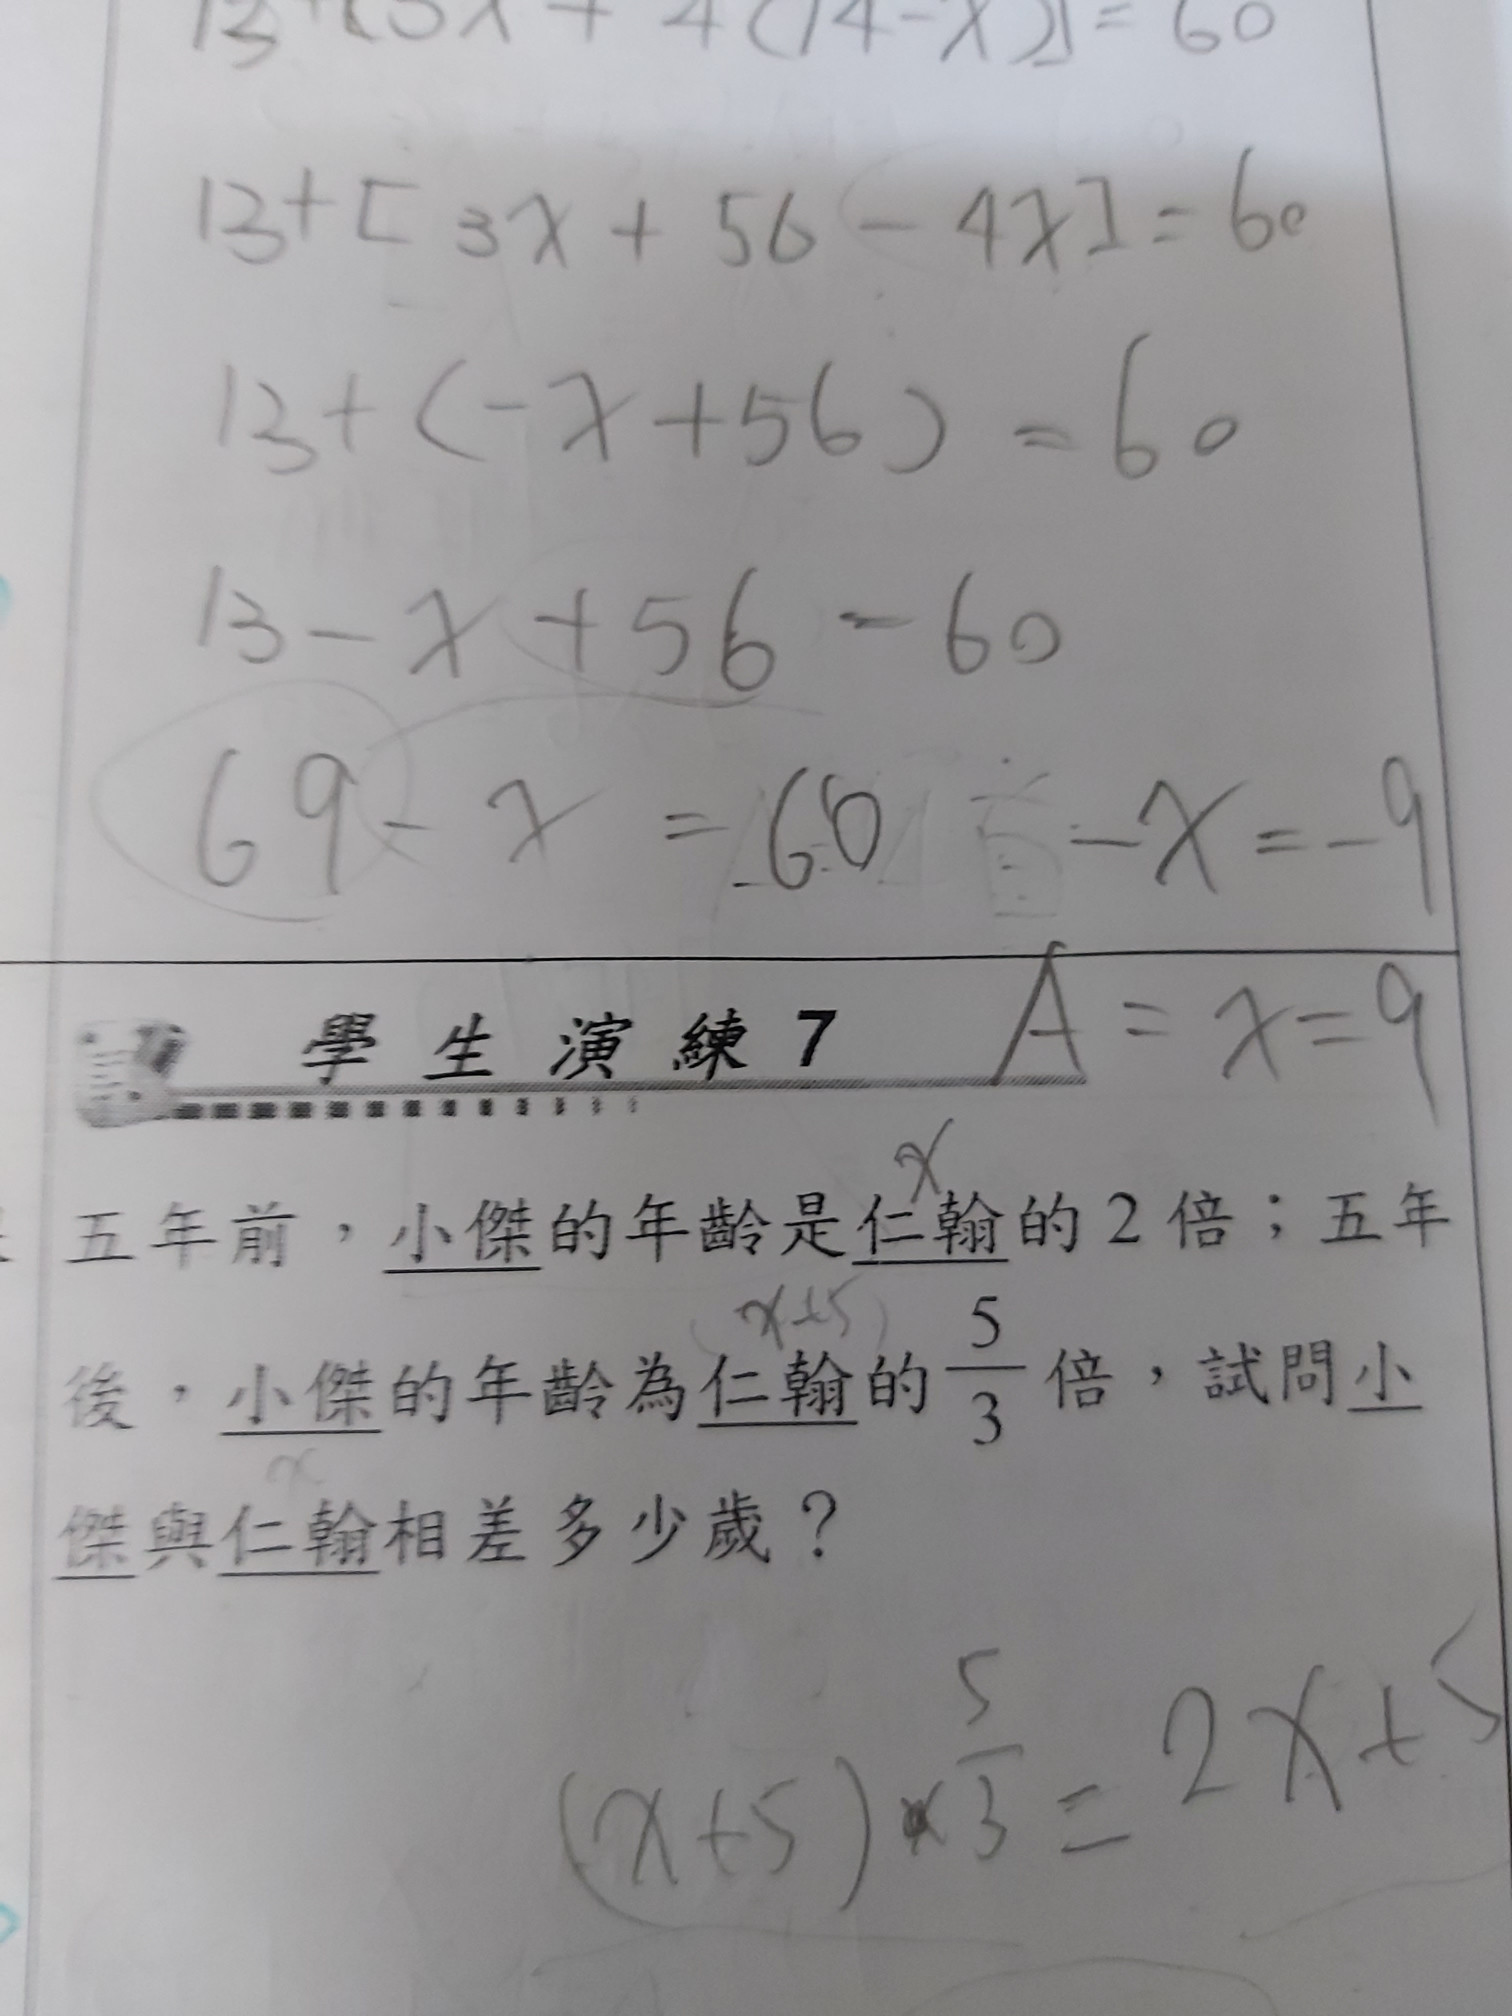 13+[3x+4(14-x)]=60
13+[3x+56-4x]=60
13+(-x+56)=60
13-x+56=60
69-x=60 -x=-9
學生演練7 A=x=9
x
五年前，小傑的年齡是仁翰的2倍；五年
(x+5)
後，小傑的年齡為仁翰的5/3倍，試問小
x
傑與仁翰相差多少歲？
(x+5)×5/3=2x+5